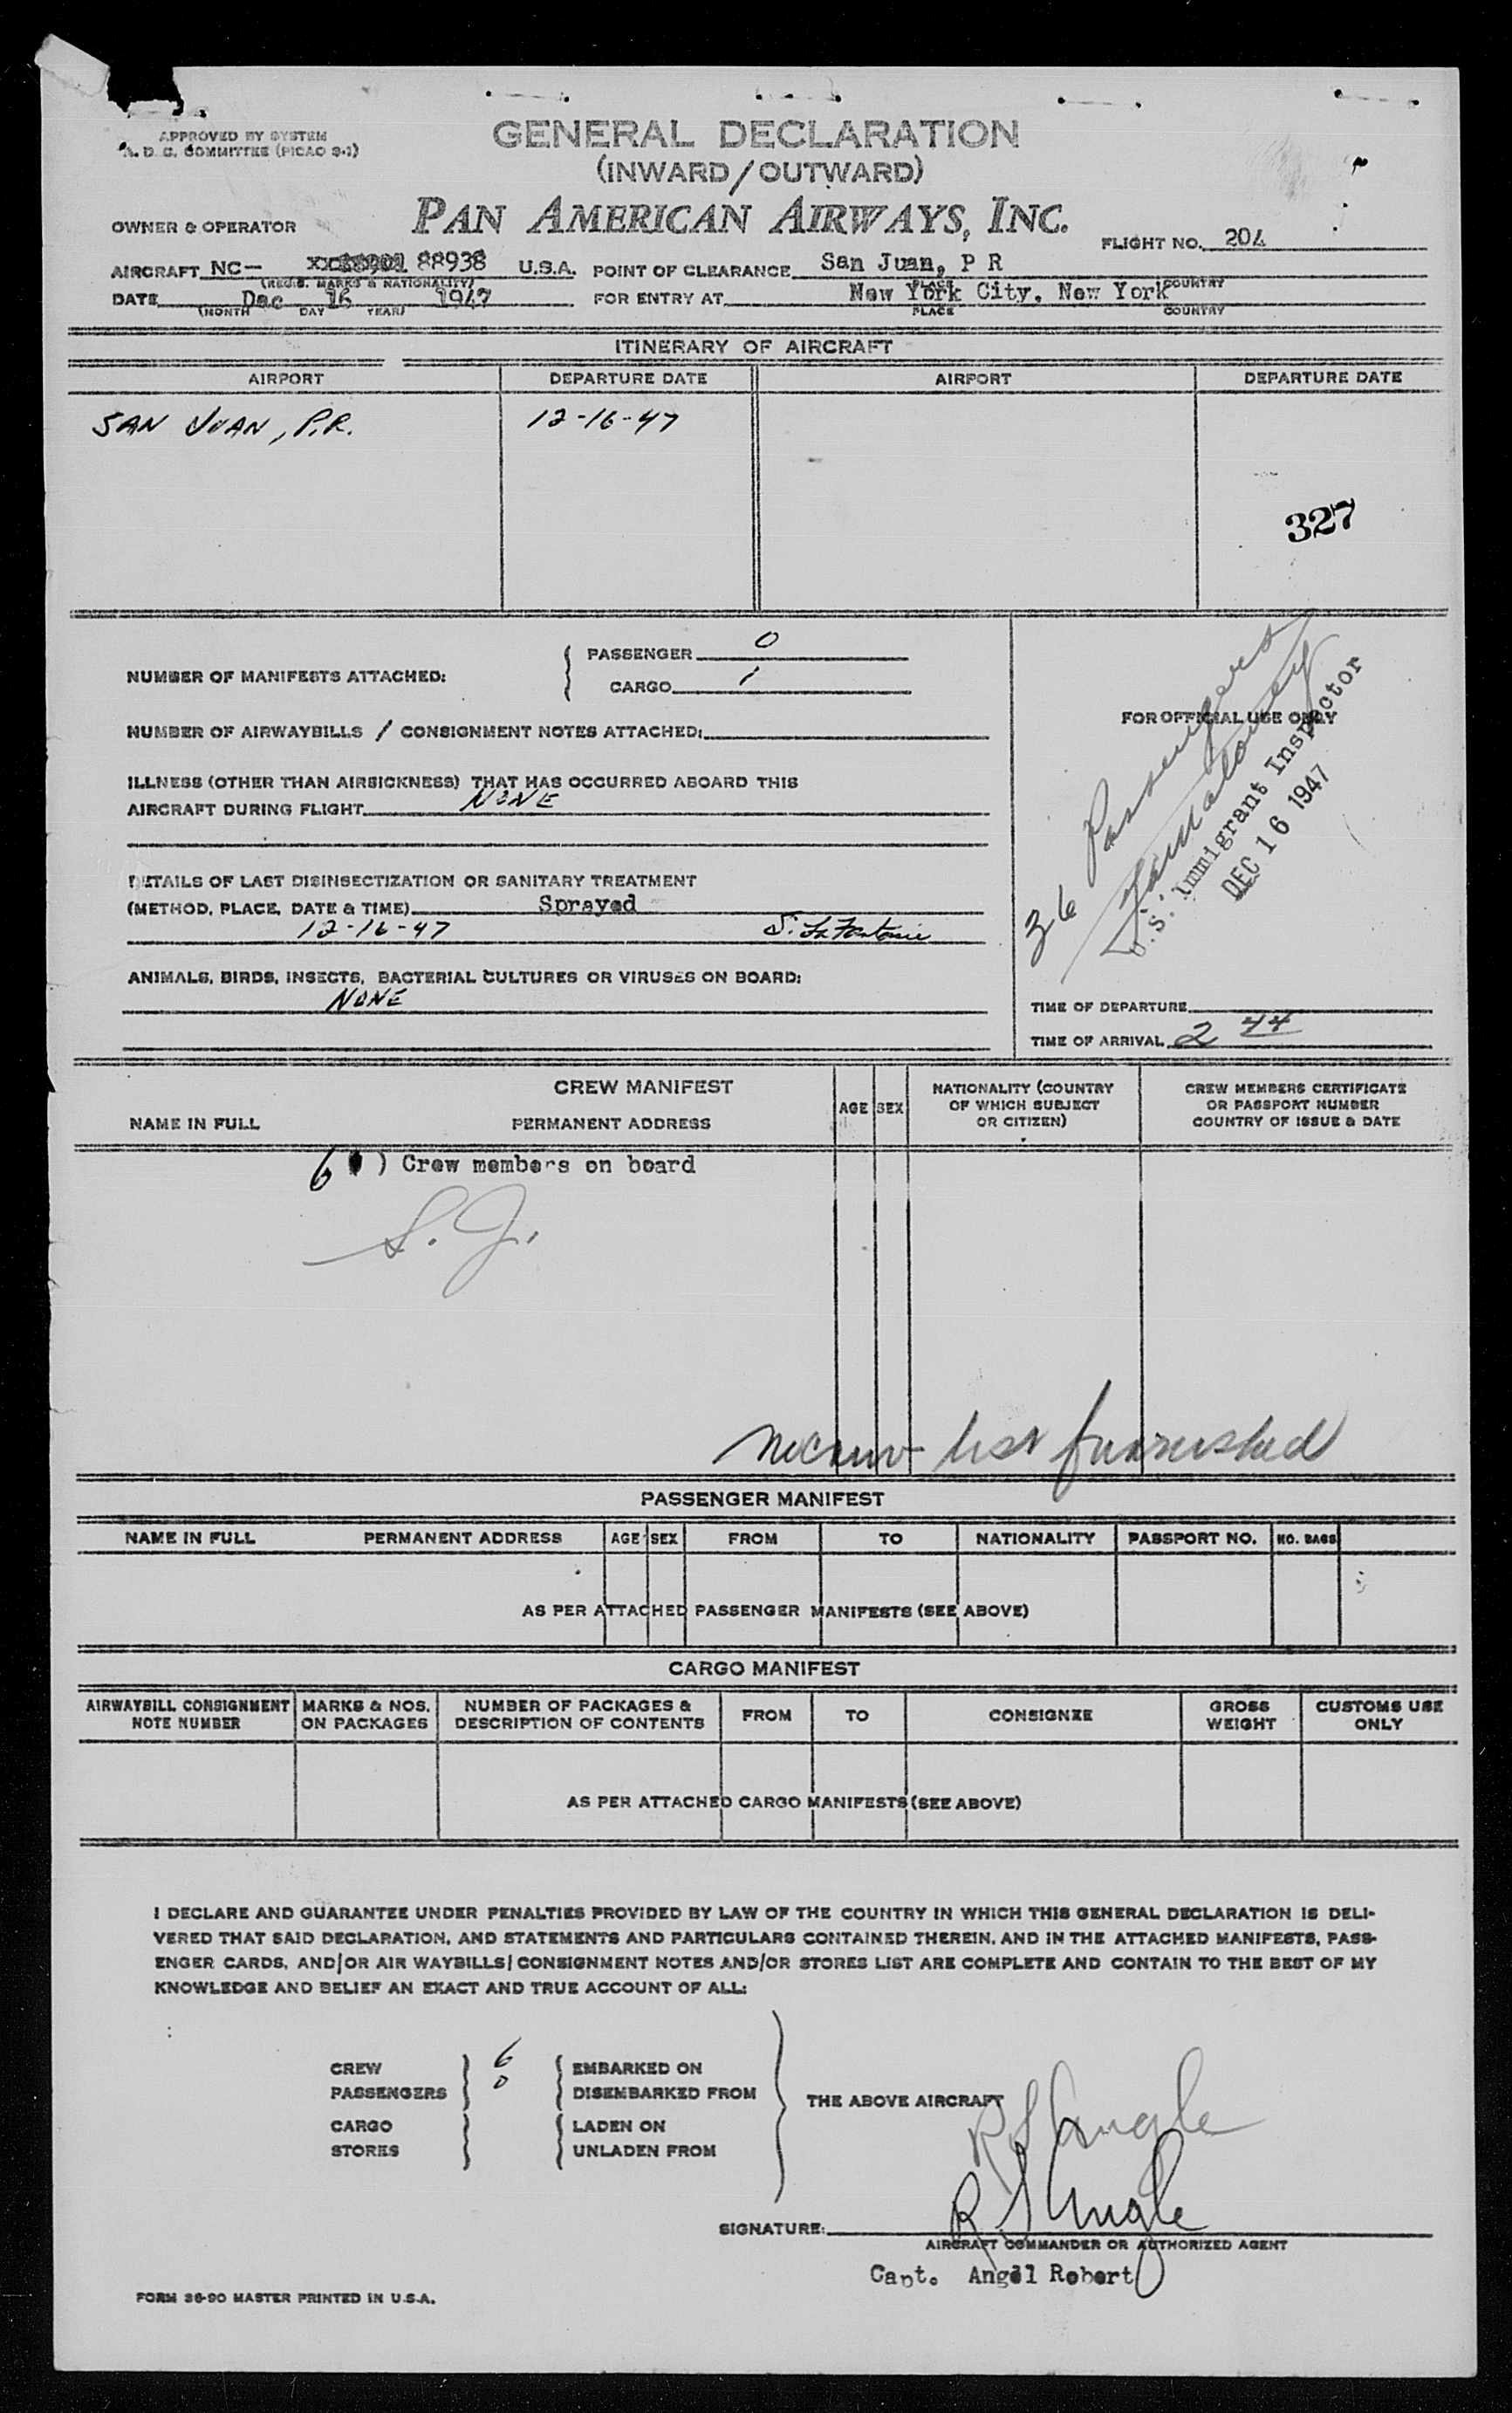 APPROVED BY SYSTEM
A. D. C. COMMITTEE (PICAO 9-1)
GENERAL DECLARATION
(INWARD/OUTWARD)
OWNER & OPERATOR
PAN AMERICAN AIRWAYS, INC.
FLIGHT NO. 204
AIRCRAFT NC- 88938 U.S.A. POINT OF CLEARANCE San Juan, P R
(REGIS. MARKS & NATIONALITY) PLACE COUNTRY
DATE Dec 16 1947 FOR ENTRY AT New York City, New York
(MONTH DAY YEAR) PLACE COUNTRY
ITINERARY OF AIRCRAFT
AIRPORT DEPARTURE DATE AIRPORT DEPARTURE DATE
SAN JUAN, P.R. 12-16-47
327
NUMBER OF MANIFESTS ATTACHED: PASSENGER 0
CARGO 1
NUMBER OF AIRWAYBILLS / CONSIGNMENT NOTES ATTACHED:
FOR OFFICIAL USE ONLY
36 Passengers
U.S. Immigrant Inspector
DEC 16 1947
ILLNESS (OTHER THAN AIRSICKNESS) THAT HAS OCCURRED ABOARD THIS
AIRCRAFT DURING FLIGHT NONE
DETAILS OF LAST DISINSECTIZATION OR SANITARY TREATMENT
(METHOD, PLACE, DATE & TIME) Sprayed
12-16-47
ANIMALS, BIRDS, INSECTS, BACTERIAL CULTURES OR VIRUSES ON BOARD:
NONE
TIME OF DEPARTURE
TIME OF ARRIVAL 2 44
CREW MANIFEST
NAME IN FULL PERMANENT ADDRESS AGE SEX NATIONALITY (COUNTRY
OF WHICH SUBJECT
OR CITIZEN)
CREW MEMBERS CERTIFICATE
OR PASSPORT NUMBER
COUNTRY OF ISSUE & DATE
6 ) Crew members on board
S. J.
No crew list furnished
PASSENGER MANIFEST
NAME IN FULL PERMANENT ADDRESS AGE SEX FROM TO NATIONALITY PASSPORT NO. NO. BAGS
AS PER ATTACHED PASSENGER MANIFESTS (SEE ABOVE)
CARGO MANIFEST
AIRWAYBILL CONSIGNMENT
NOTE NUMBER
MARKS & NOS.
ON PACKAGES
NUMBER OF PACKAGES &
DESCRIPTION OF CONTENTS
FROM TO CONSIGNEE
GROSS
WEIGHT
CUSTOMS USE
ONLY
AS PER ATTACHED CARGO MANIFESTS (SEE ABOVE)
I DECLARE AND GUARANTEE UNDER PENALTIES PROVIDED BY LAW OF THE COUNTRY IN WHICH THIS GENERAL DECLARATION IS DELI-
VERED THAT SAID DECLARATION, AND STATEMENTS AND PARTICULARS CONTAINED THEREIN, AND IN THE ATTACHED MANIFESTS, PASS-
ENGER CARDS, AND/OR AIR WAYBILLS/CONSIGNMENT NOTES AND/OR STORES LIST ARE COMPLETE AND CONTAIN TO THE BEST OF MY
KNOWLEDGE AND BELIEF AN EXACT AND TRUE ACCOUNT OF ALL:
CREW 6 EMBARKED ON
PASSENGERS 0 DISEMBARKED FROM
THE ABOVE AIRCRAFT
CARGO LADEN ON
STORES UNLADEN FROM
R S Angle
R S Angle
SIGNATURE:
AIRCRAFT COMMANDER OR AUTHORIZED AGENT
Capt. Angel Robert
FORM 36-90 MASTER PRINTED IN U.S.A.